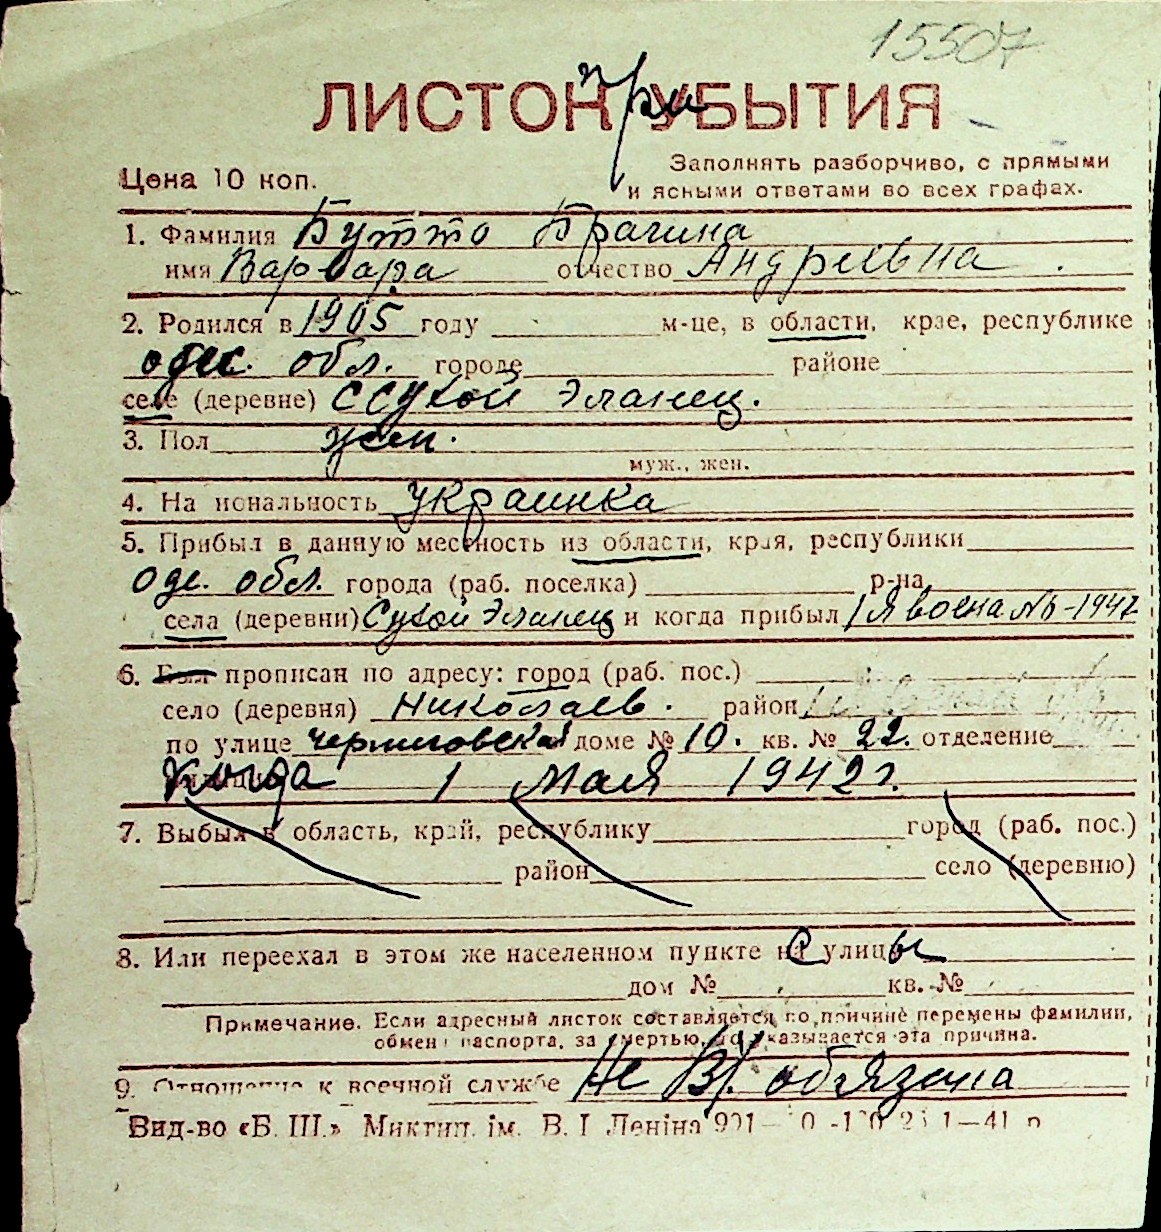 15507
ЛИСТОК при УБЫТИЯ
Цена 10 коп.
Заполнять разборчиво, с прямыми
и ясными ответами во всех графах.
1. Фамилия Бутто Брагина
имя Варвара отчество Андреевна.
2. Родился в 1905 году м-це, в области, крае, республике
одес. обл. городе районе
селе (деревне) ССухой Эланец.
3. Пол жен.
муж., жен.
4. На иональность Украинка
5. Прибыл в данную местность из области, края, республики
Оде. обл. города (раб. поселка) р-на
села (деревни) Сухой Эланец и когда прибыл 1942
6. Был прописан по адресу: город (раб. пос.)
село (деревня) Николаев. район
по улице Черниговская доме № 10. кв. № 22. отделение
Когда 1 мая 1942 г.
7. Выбыл в область, край, республику город (раб. пос.)
район село (деревню)
8. Или переехал в этом же населенном пункте на С улицы
дом № кв. №
Примечание. Если адресный листок составляется по причине перемены фамилии,
обмен паспорта, за смертью, то указывается эта причина.
9. Отношение к военной службе Не В/обязана
Вид-во «Б. Ш.» Миктип. ім. В. І Леніна